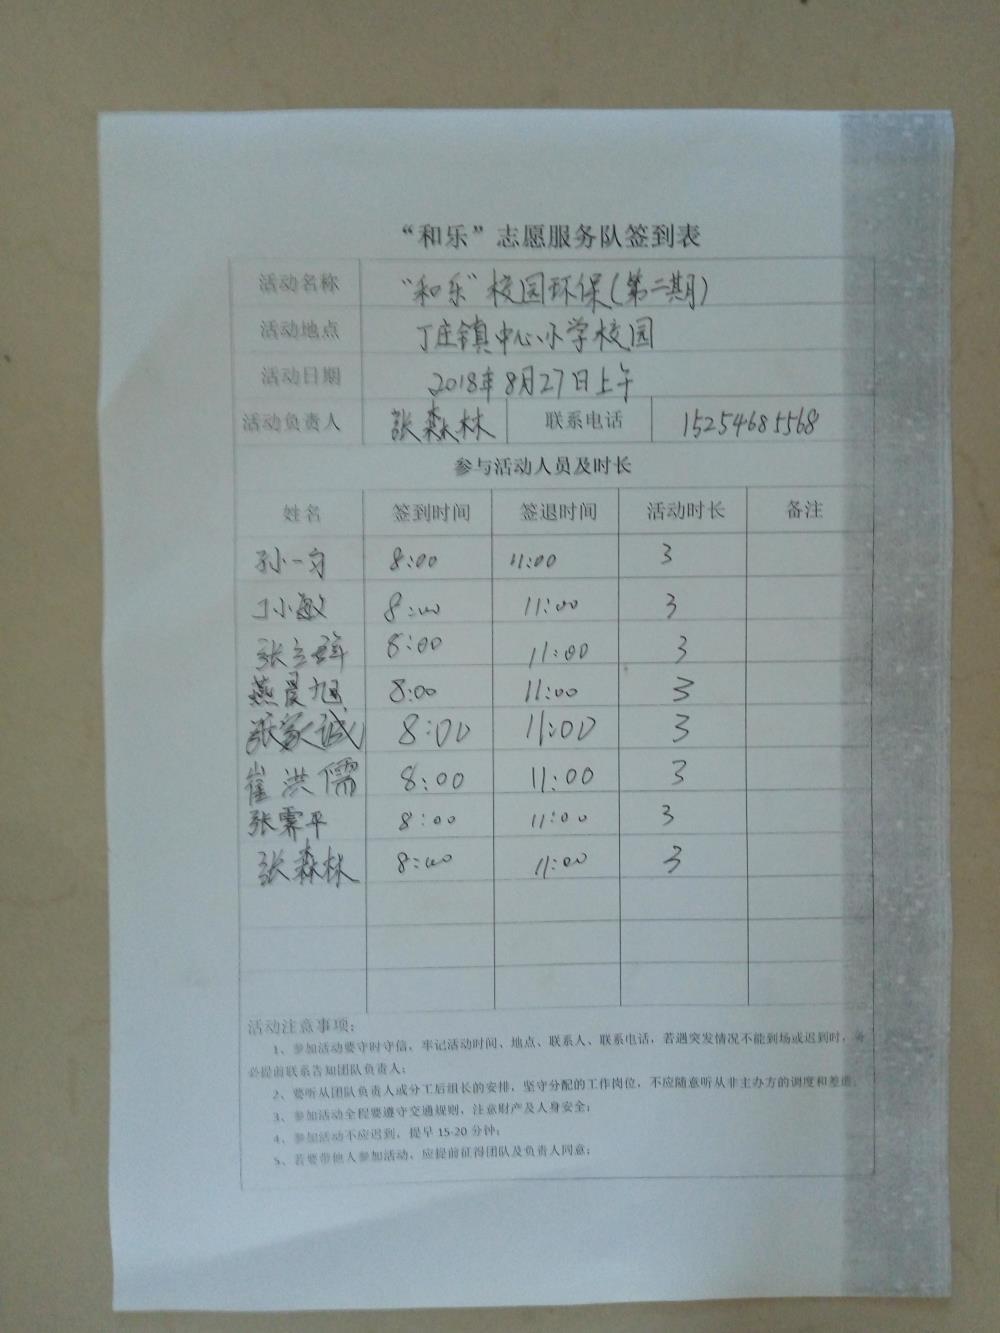 “和乐”志愿服务队签到表
活动名称 “和乐”校园环保(第二期)
活动地点 丁庄镇中心小学校园
活动日期 2018年8月27日上午
活动负责人 张森林 联系电话 15254685568
参与活动人员及时长
姓名 签到时间 签退时间 活动时长 备注
孙一 8:00 11:00 3
丁小敏 8:00 11:00 3
张立群 8:00 11:00 3
燕晨旭 8:00 11:00 3
张家诚 8:00 11:00 3
崔洪儒 8:00 11:00 3
张霁平 8:00 11:00 3
张森林 8:00 11:00 3
活动注意事项:
1、参加活动要守时守信，牢记活动时间、地点、联系人、联系电话，若遇突发情况不能到场或迟到时，务
必提前联系告知团队负责人;
2、要听从团队负责人或分工后组长的安排，坚守分配的工作岗位，不应随意听从非主办方的调度和差遣;
3、参加活动全程要遵守交通规则，注意财产及人身安全;
4、参加活动不应迟到，提早 15-20 分钟;
5、若要带他人参加活动，应提前征得团队及负责人同意;